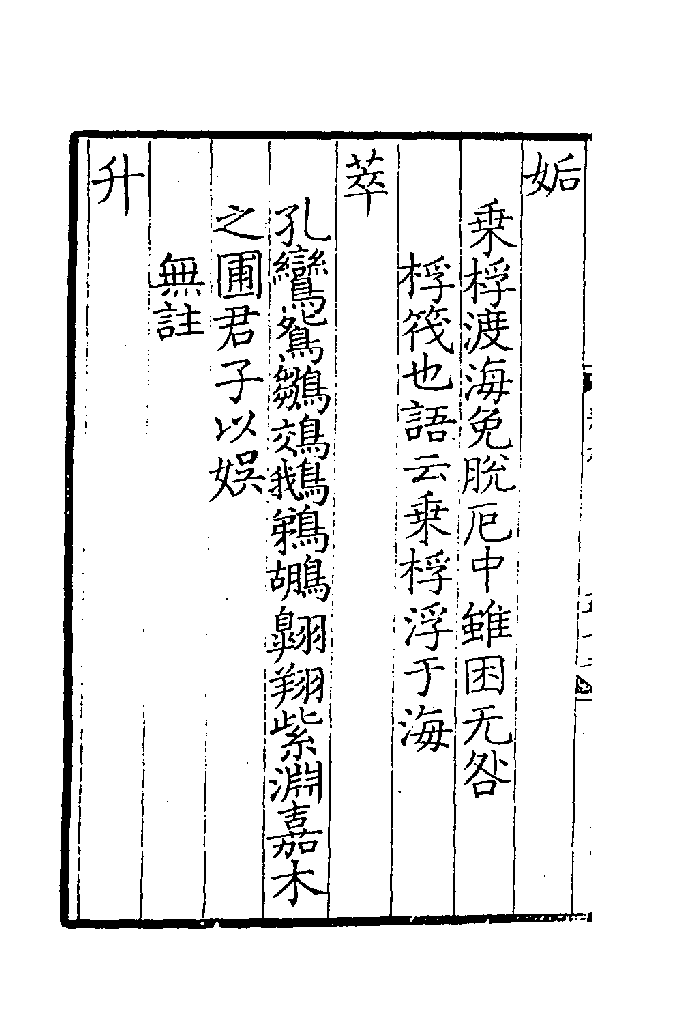 姤
乗桴渡海免脱厄中雖困无咎
桴筏也語云乗桴浮于海
萃
孔鸞鴛鶵鵁鵝鵜鶘翱翔紫淵嘉木
之圃君子以娯
無註
升